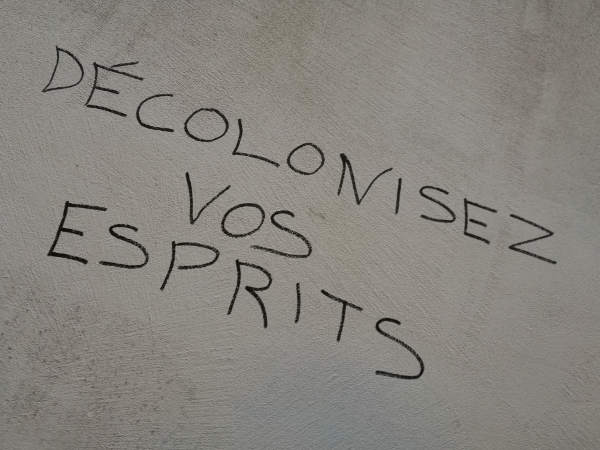 DÉCOLONISEZ
VOS
ESPRITS